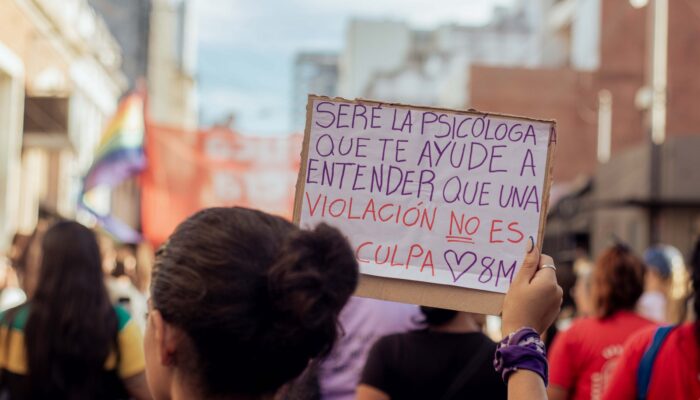 SERÉ LA PSICÓLOGA
QUE TE AYUDE A
ENTENDER QUE UNA
VIOLACIÓN NO ES
CULPA ♡ 8M